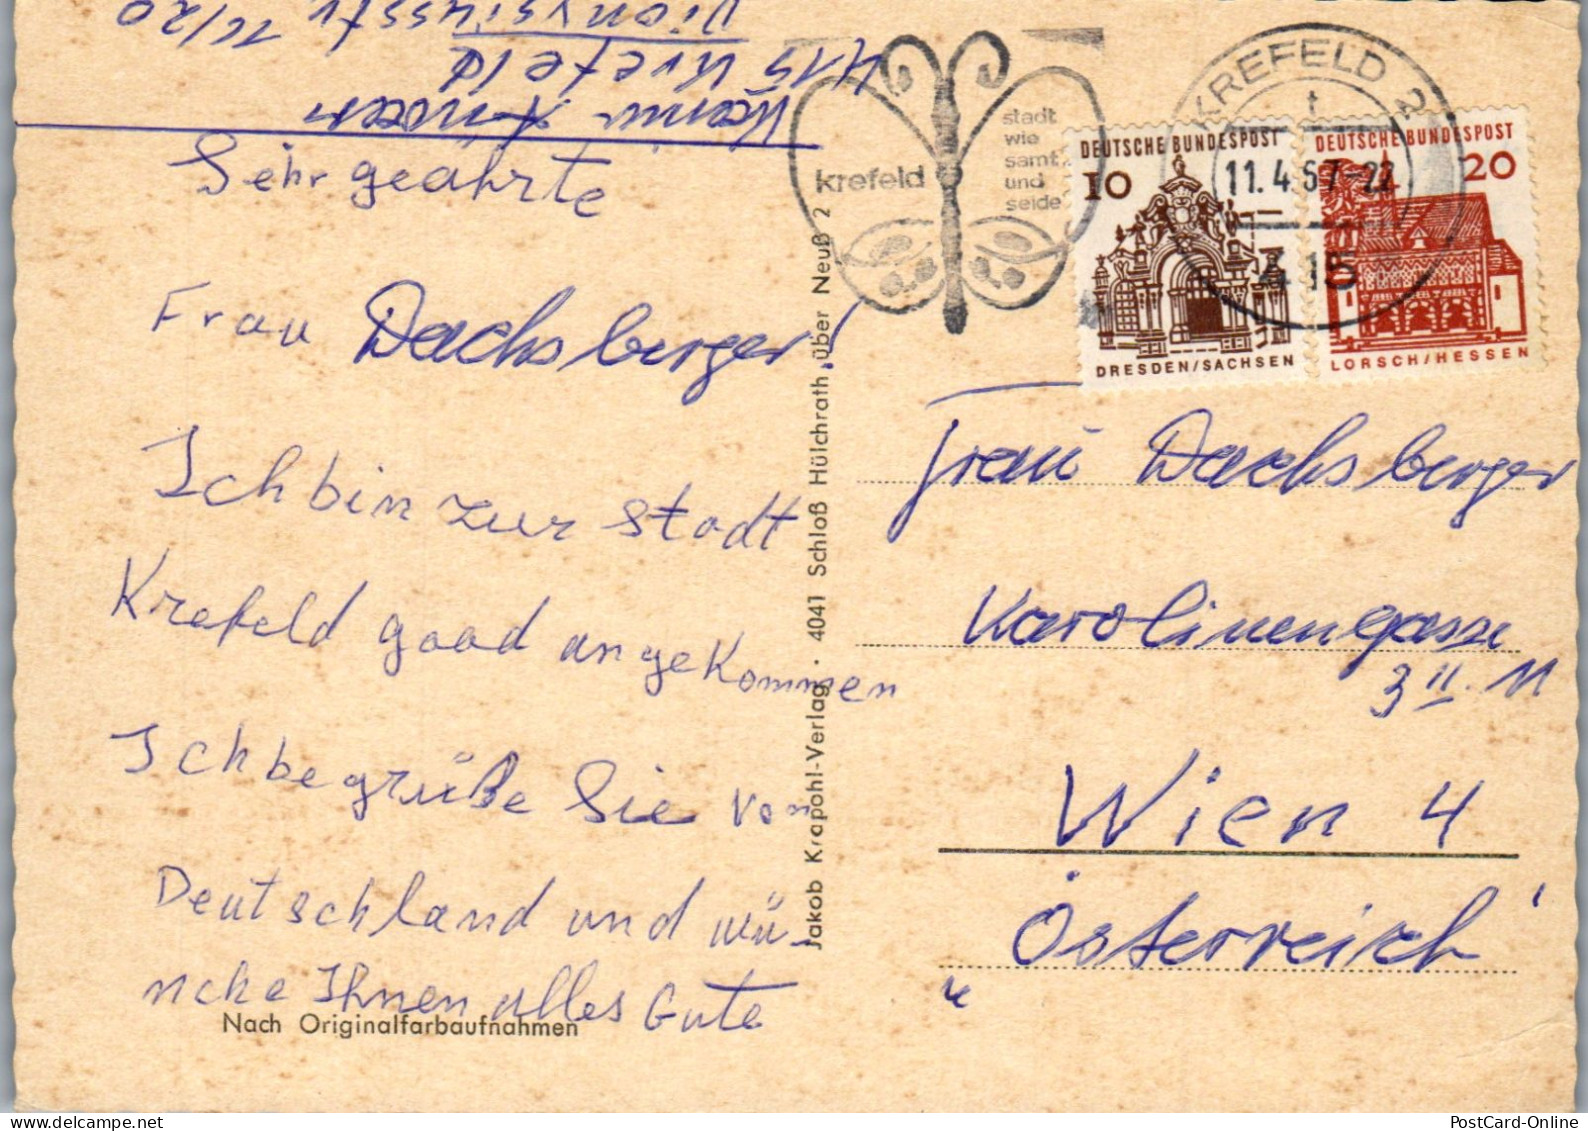 Dionysiusstr 11/20
415 Krefeld
Sehr geährte
Frau Dachsberger!
Ich bin zur Stadt
Krefeld good angekommen
Ich begrüße Sie von
Deutschland und wü-
nche Ihnen alles Gute
Nach Originalfarbaufnahmen
Jakob Krapohl-Verlag · 4041 Schloß Hülchrath über Neuß 2
krefeld
stadt
wie
samt
und
seide
KREFELD 2
t
11.4.67-22
415
DEUTSCHE BUNDESPOST
10
DRESDEN/SACHSEN
DEUTSCHE BUNDESPOST
20
LORSCH/HESSEN
Frau Dachsberger
Karolinengasse
3 II. 11
Wien 4
Österreich
PostCard-Online.com